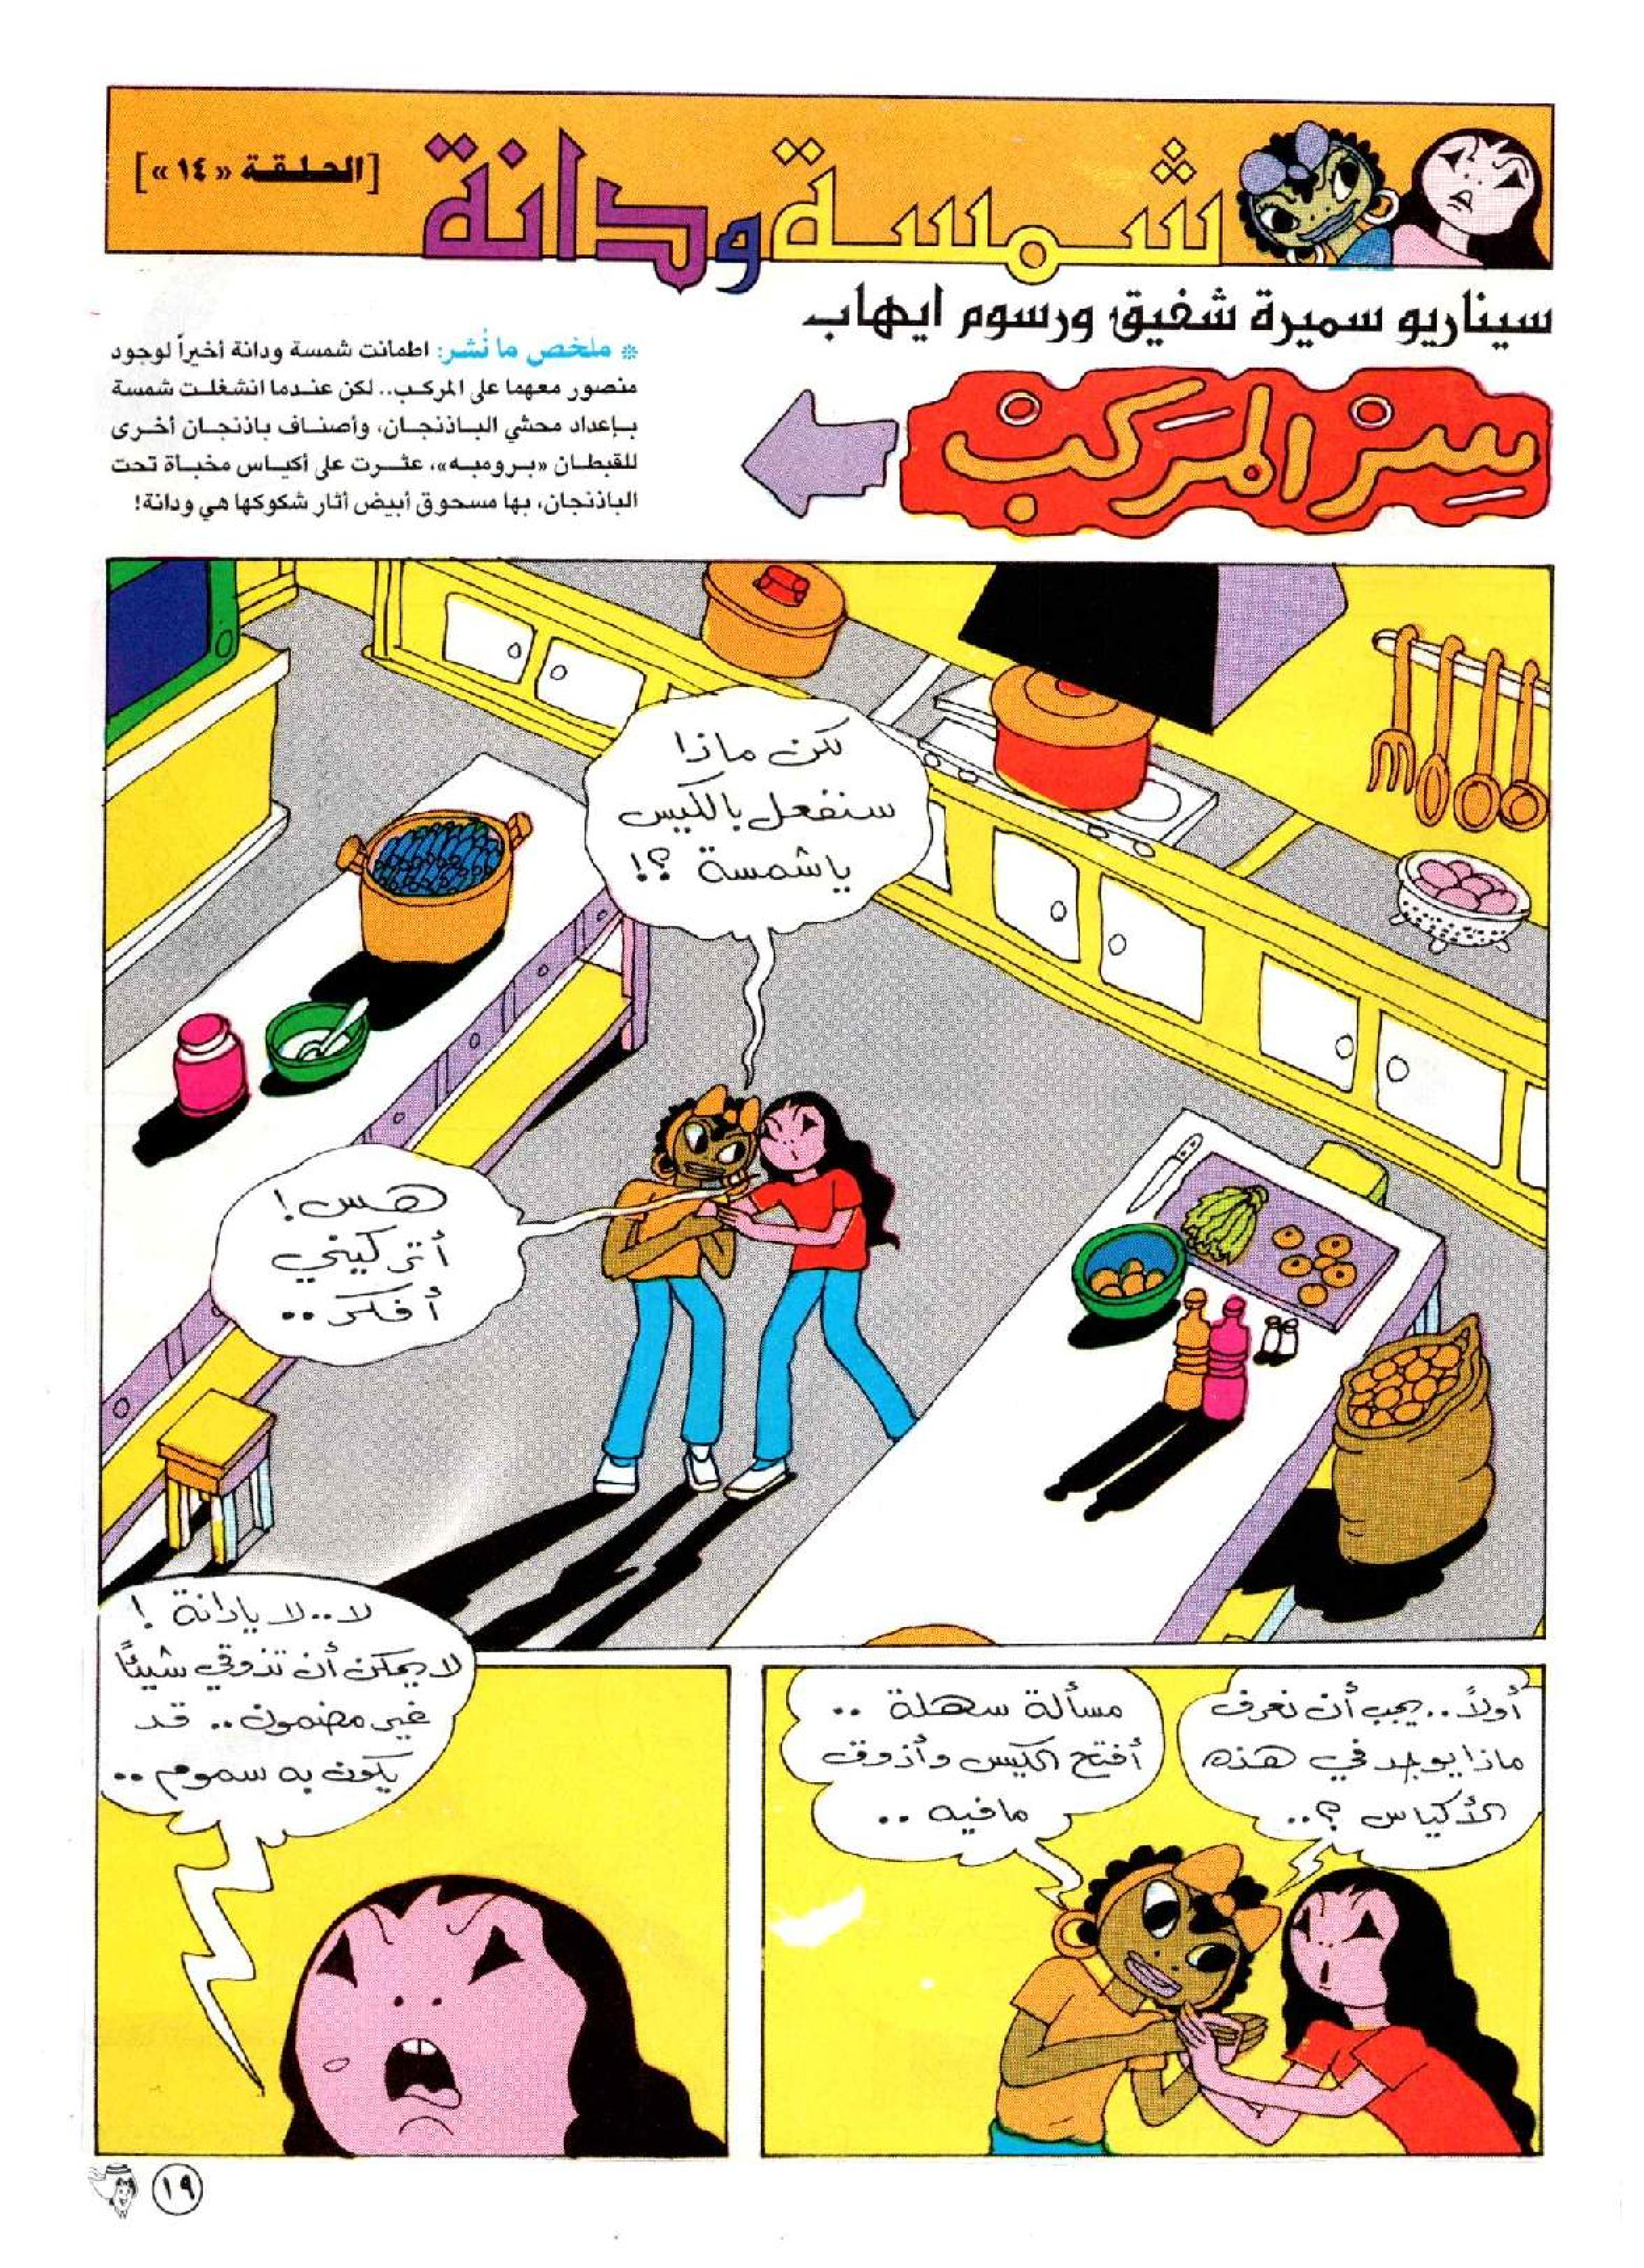 شمسة ودانة
[الحلقة «١٤»]
سيناريو سميرة شفيق ورسوم ايهاب
سر المركب
* ملخص ما نُشر: اطمانت شمسة ودانة أخيراً لوجود
منصور معهما على المركب.. لكن عندما انشغلت شمسة
بإعداد محشي الباذنجان، وأصناف باذنجان أخرى
للقبطان «برومبه»، عثرت على أكياس مخبأة تحت
الباذنجان، بها مسحوق أبيض أثار شكوكها هي ودانة!
لكن ماذا
سنفعل بالكيس
ياشمسة ؟!
هس!
أتركيني
أفكر..
أولاً.. يجب أن نعرف
ماذا يوجد في هذه
الأكياس ؟..
مسألة سهلة ..
أفتح الكيس وأذوق
مافيه ..
لا..لا يادانة !
لا يمكن أن تذوقي شيئاً
غير مضمون.. قد
يكون به سموم ..
١٩